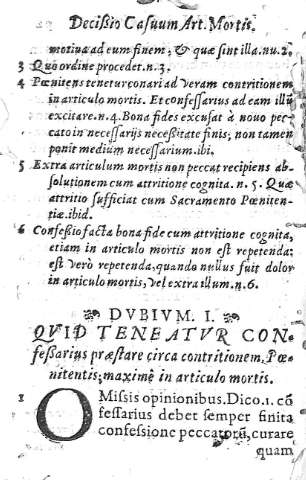 Decißio Casuum Art. Mortis.
motiua ad eum finem; & quæ sint illa. nu. 2.
3 Quo ordine procedet. n. 3.
4 Pœnitens tenetur conari ad veram contritionem
in articulo mortis. Et confessarius ad eam illū
excitare. n. 4. Bona fides excusat à nouo pec-
cato in necessarijs necessitate finis; non tamen
ponit medium necessarium. ibi.
5 Extra articulum mortis non peccat recipiens ab-
solutionem cum attritione cognita. n. 5. Quæ
attritio sufficiat cum Sacramento Pœniten-
tiæ. ibid.
6 Confessio facta bona fide cum attritione cognita,
etiam in articulo mortis non est repetenda:
est verò repetenda, quando nullus fuit dolor
in articulo mortis, vel extra illum. n. 6.
DVBIVM. I.
QVID TENEATVR CON-
fessarius præstare circa contritionem. Pœ-
nitentis; maximè in articulo mortis.
1 OMissis opinionibus. Dico. 1. cō
fessarius debet semper finita
confessione peccatorū, curare
quam